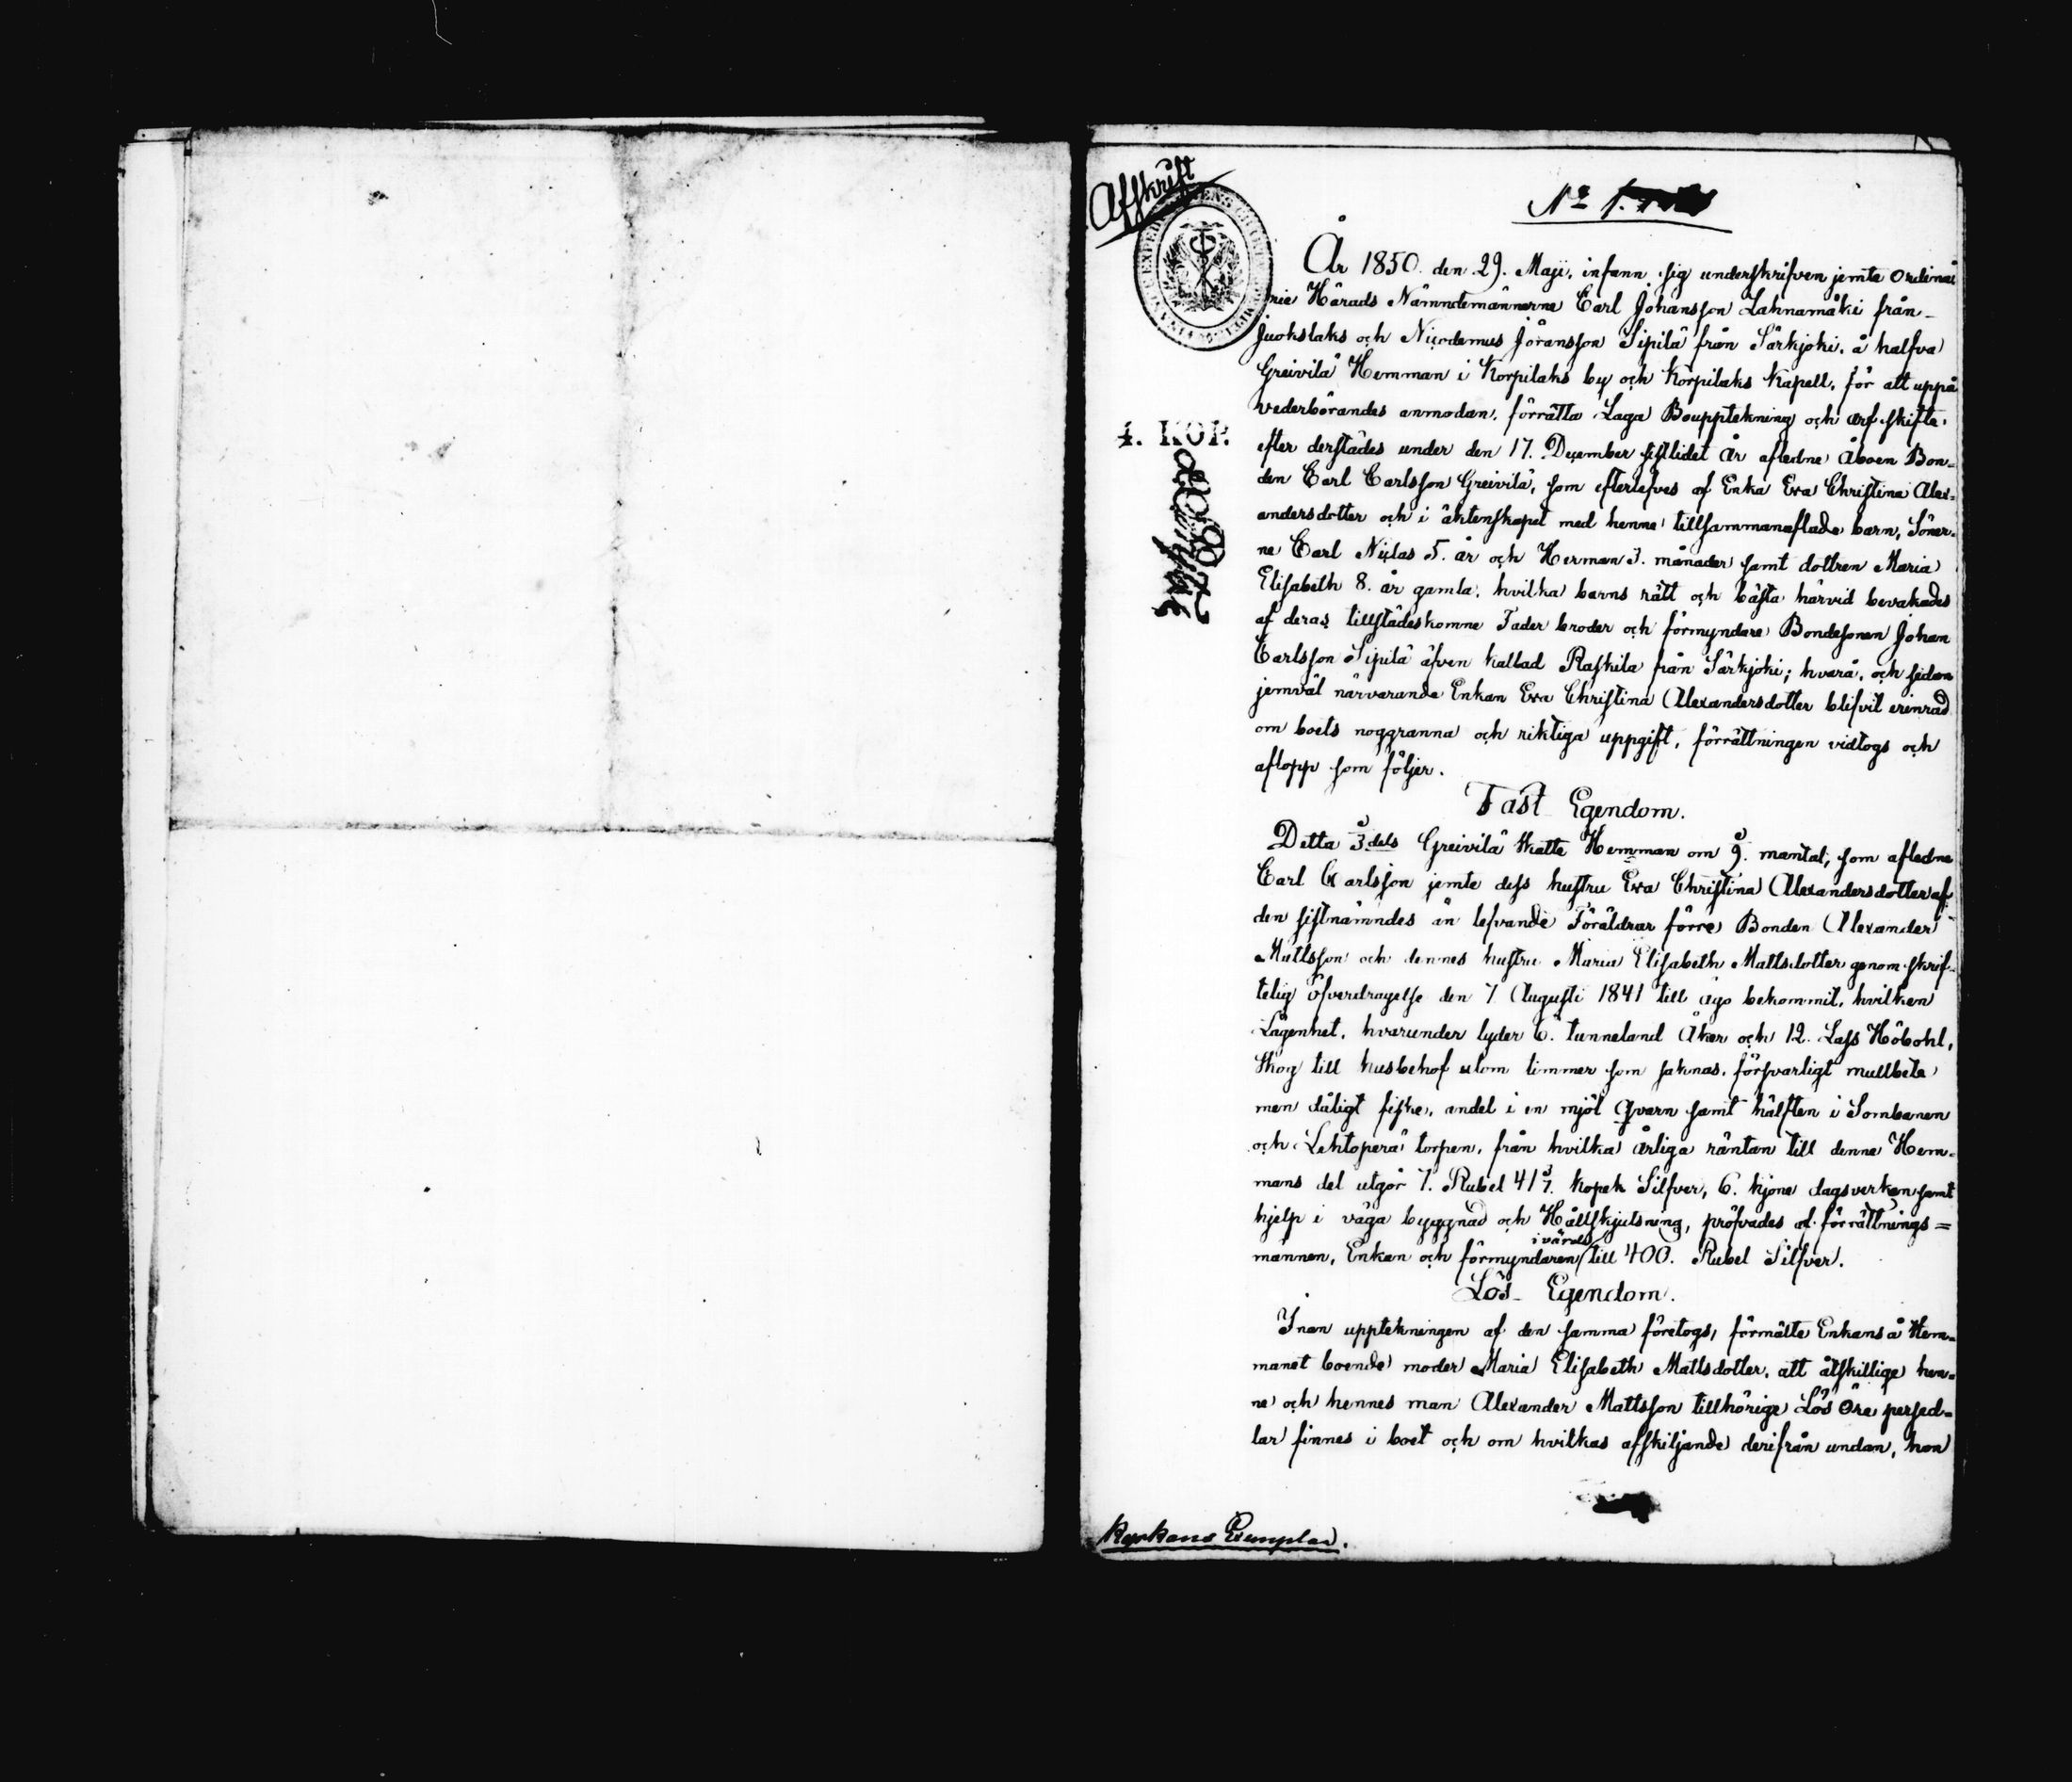 Afskrift
No 1.
4. KOP.
År 1850. den 29. Maji, infann sig underskrifven jemte Ordina-
rie Härads Nämndemännerne Carl Johansson Lahnamäki från
Juokslaks och Nicodemus Jöransson Sipilä från Särkjoki, å halfva
Greivilä Hemman i Korpilaks by och Korpilaks Kapell, för att uppå
vederbörandes anmodan, förrätta Laga Boupptekning och arf skifte,
efter derstädes under den 17. December sistlidet år aflidne Åboen Bon-
den Carl Carlsson Greivilä, som efterlefves af Enka Eva Christina Alex-
andersdotter och i äktenskapet med henne tillsammanaflade barn, Söner-
ne Carl Niclas 5. år och Herman 3. månader samt dottren Maria
Elisabeth 8. år gamla, hvilka barns rätt och bästa härvid bevakades
af deras tillstädeskomne Fader broder och förmyndare Bondesonen Johan
Carlsson Sipilä äfven kallad Raskila från Särkjoki; hvarå, och sedan
jemväl närvarande Enkan Eva Christina Alexandersdotter blifvit erinrad
om boets noggranna och riktiga uppgift, förrättningen vidtogs och
aflopp som följer.
Fast Egendom.
Detta dels Greivilä Skatte Hemman om mantal, som afledne
Carl Carlsson jemte dess hustru Eva Christina Alexandersdotter af
den sistnämndes än lefvande Föräldrar förre Bonden Alexander
Mattsson och dennes hustru Maria Elisabeth Mattsdotter genom skrif-
telig öfverdragelse den 7 Augusti 1841 till ägo bekommit, hvilken
Lägenhet, hvarunder lyder 6. tunneland Åker och 12. Lass Höbohl,
Skog till husbehof utom timmer som saknas, försvarligt mullbete
men dåligt fiske, andel i en mjöl qvarn samt hälften i Sombanen
och Lehtoperä torpen, från hvilka årliga räntan till denne Hem-
mans del utgör 7. Rubel 41 3/7. kopek Silfver, 6. kjöne dagsverken samt
hjelp i väga byggnad och Hållskjutsning, pröfvades af förrättnings=
männen, Enkan och förmyndaren i värde till 400. Rubel Silfver.
Lös Egendom.
Inan upptekningen af den samma företogs, förmälte Enkans å Hem-
manet boende moder Maria Elisabeth Mattsdotter, att åtskillige hen-
ne och hennes man Alexander Mattsson tillhörige Lös Öre persed-
lar finnes i boet och om hvilkas afskiljande derifrån undan, hon
Kyrkans Exemplar.